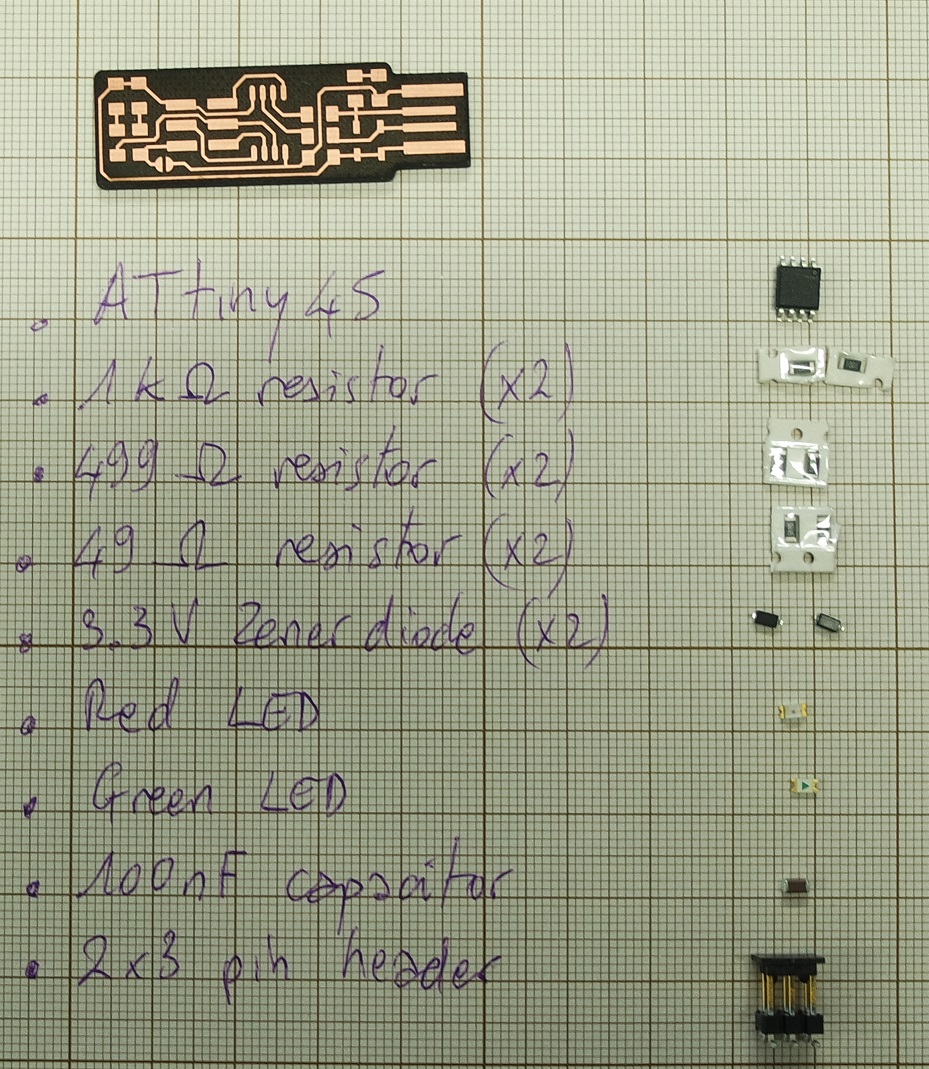 . ATtiny45
. 1kΩ resistor (x2)
. 499 Ω resistor (x2)
. 49 Ω resistor (x2)
. 3.3V Zener diode (x2)
. Red LED
. Green LED
. 100nF capacitor
. 2x3 pin header